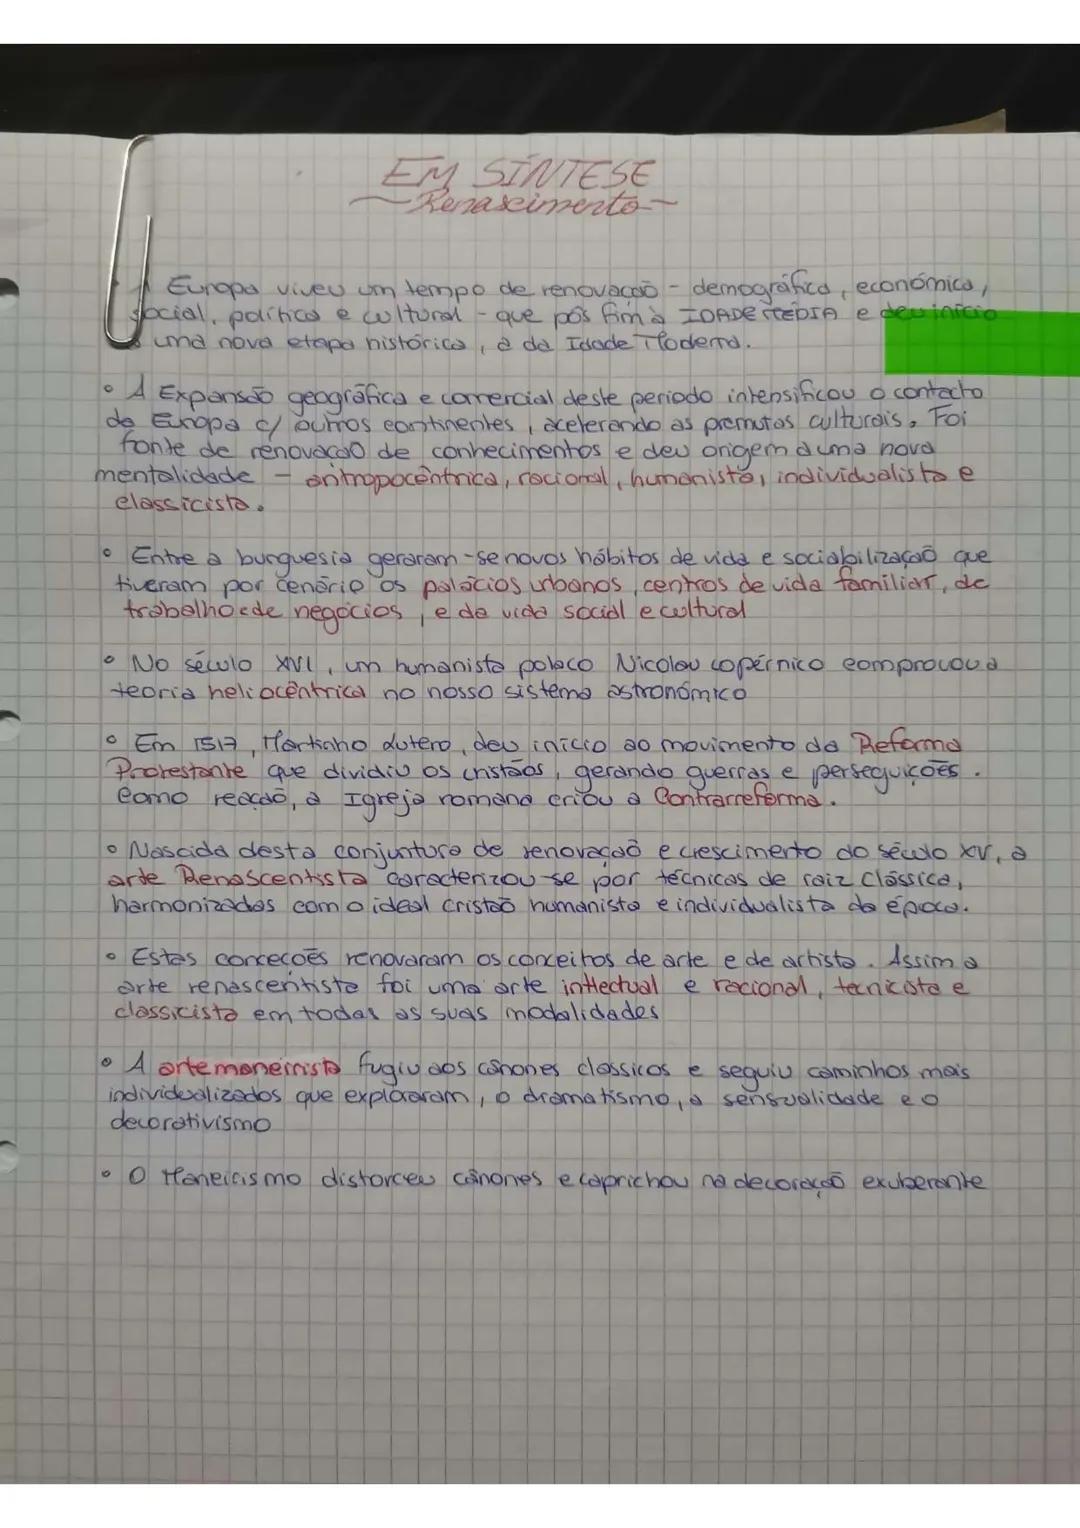 EM SÍNTESE
Renascimento
A Europa viveu um tempo de renovação - demográfica, económica,
social, política e cultural - que pôs fim à IDADE MÉDIA e deu início
a uma nova etapa histórica, a da Idade Moderna.
• A Expansão geográfica e comercial deste periodo intensificou o contacto
da Europa c/ outros continentes, acelerando as premutas culturais. Foi
fonte de renovação de conhecimentos e deu origem a uma nova
mentalidade - antropocêntrica, racional, humanista, individualista e
classicista.
• Entre a burguesia geraram-se novos hábitos de vida e sociabilização que
tiveram por cenário os palácios urbanos, centros de vida familiar, de
trabalho e de negócios, e da vida social e cultural
• No século XVI, um humanista polaco Nicolau copérnico comprovou a
teoria heliocêntrica no nosso sistema astronómico
• Em 1517, Martinho Lutero, deu início ao movimento da Reforma
Protestante que dividiu os cristãos, gerando guerras e perseguições.
Como reação, a Igreja romana criou a Contrarreforma.
• Nascida desta conjuntura de renovação e crescimento do século XV, a
arte Renascentista caracterizou-se por técnicas de raiz clássica,
harmonizadas com o ideal cristão humanista e individualista da época.
• Estas conceções renovaram os conceitos de arte e de artista. Assim a
arte renascentista foi uma arte intlectual e racional, tecnicista e
classicista em todas as suas modalidades
• A arte maneirista fugiu aos cânones classicos e seguiu caminhos mais
individualizados que exploraram, o dramatismo, a sensualidade e o
decorativismo
• O Maneirismo distorceu cânones e caprichou na decoração exuberante